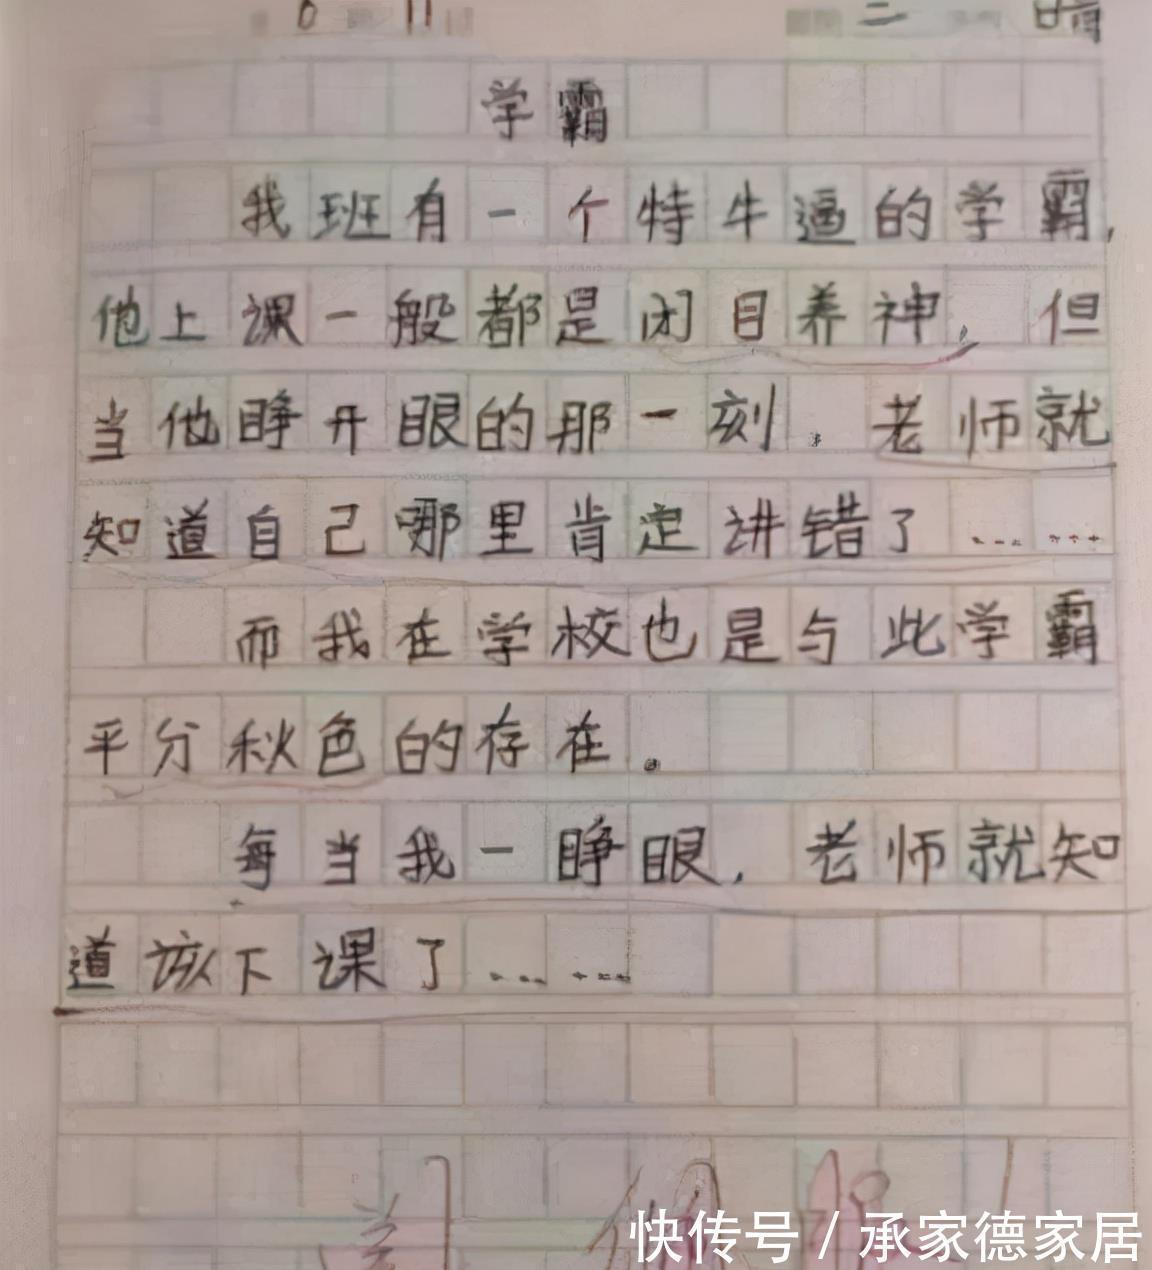 二 晴
学霸
我班有一个特牛逼的学霸,
他上课一般都是闭目养神, 但
当他睁开眼的那一刻. 老师就
知道自己哪里肯定讲错了……
而我在学校也是与此学霸
平分秋色的存在。
每当我一睁眼, 老师就知
道该下课了……
快传号 / 承家德家居